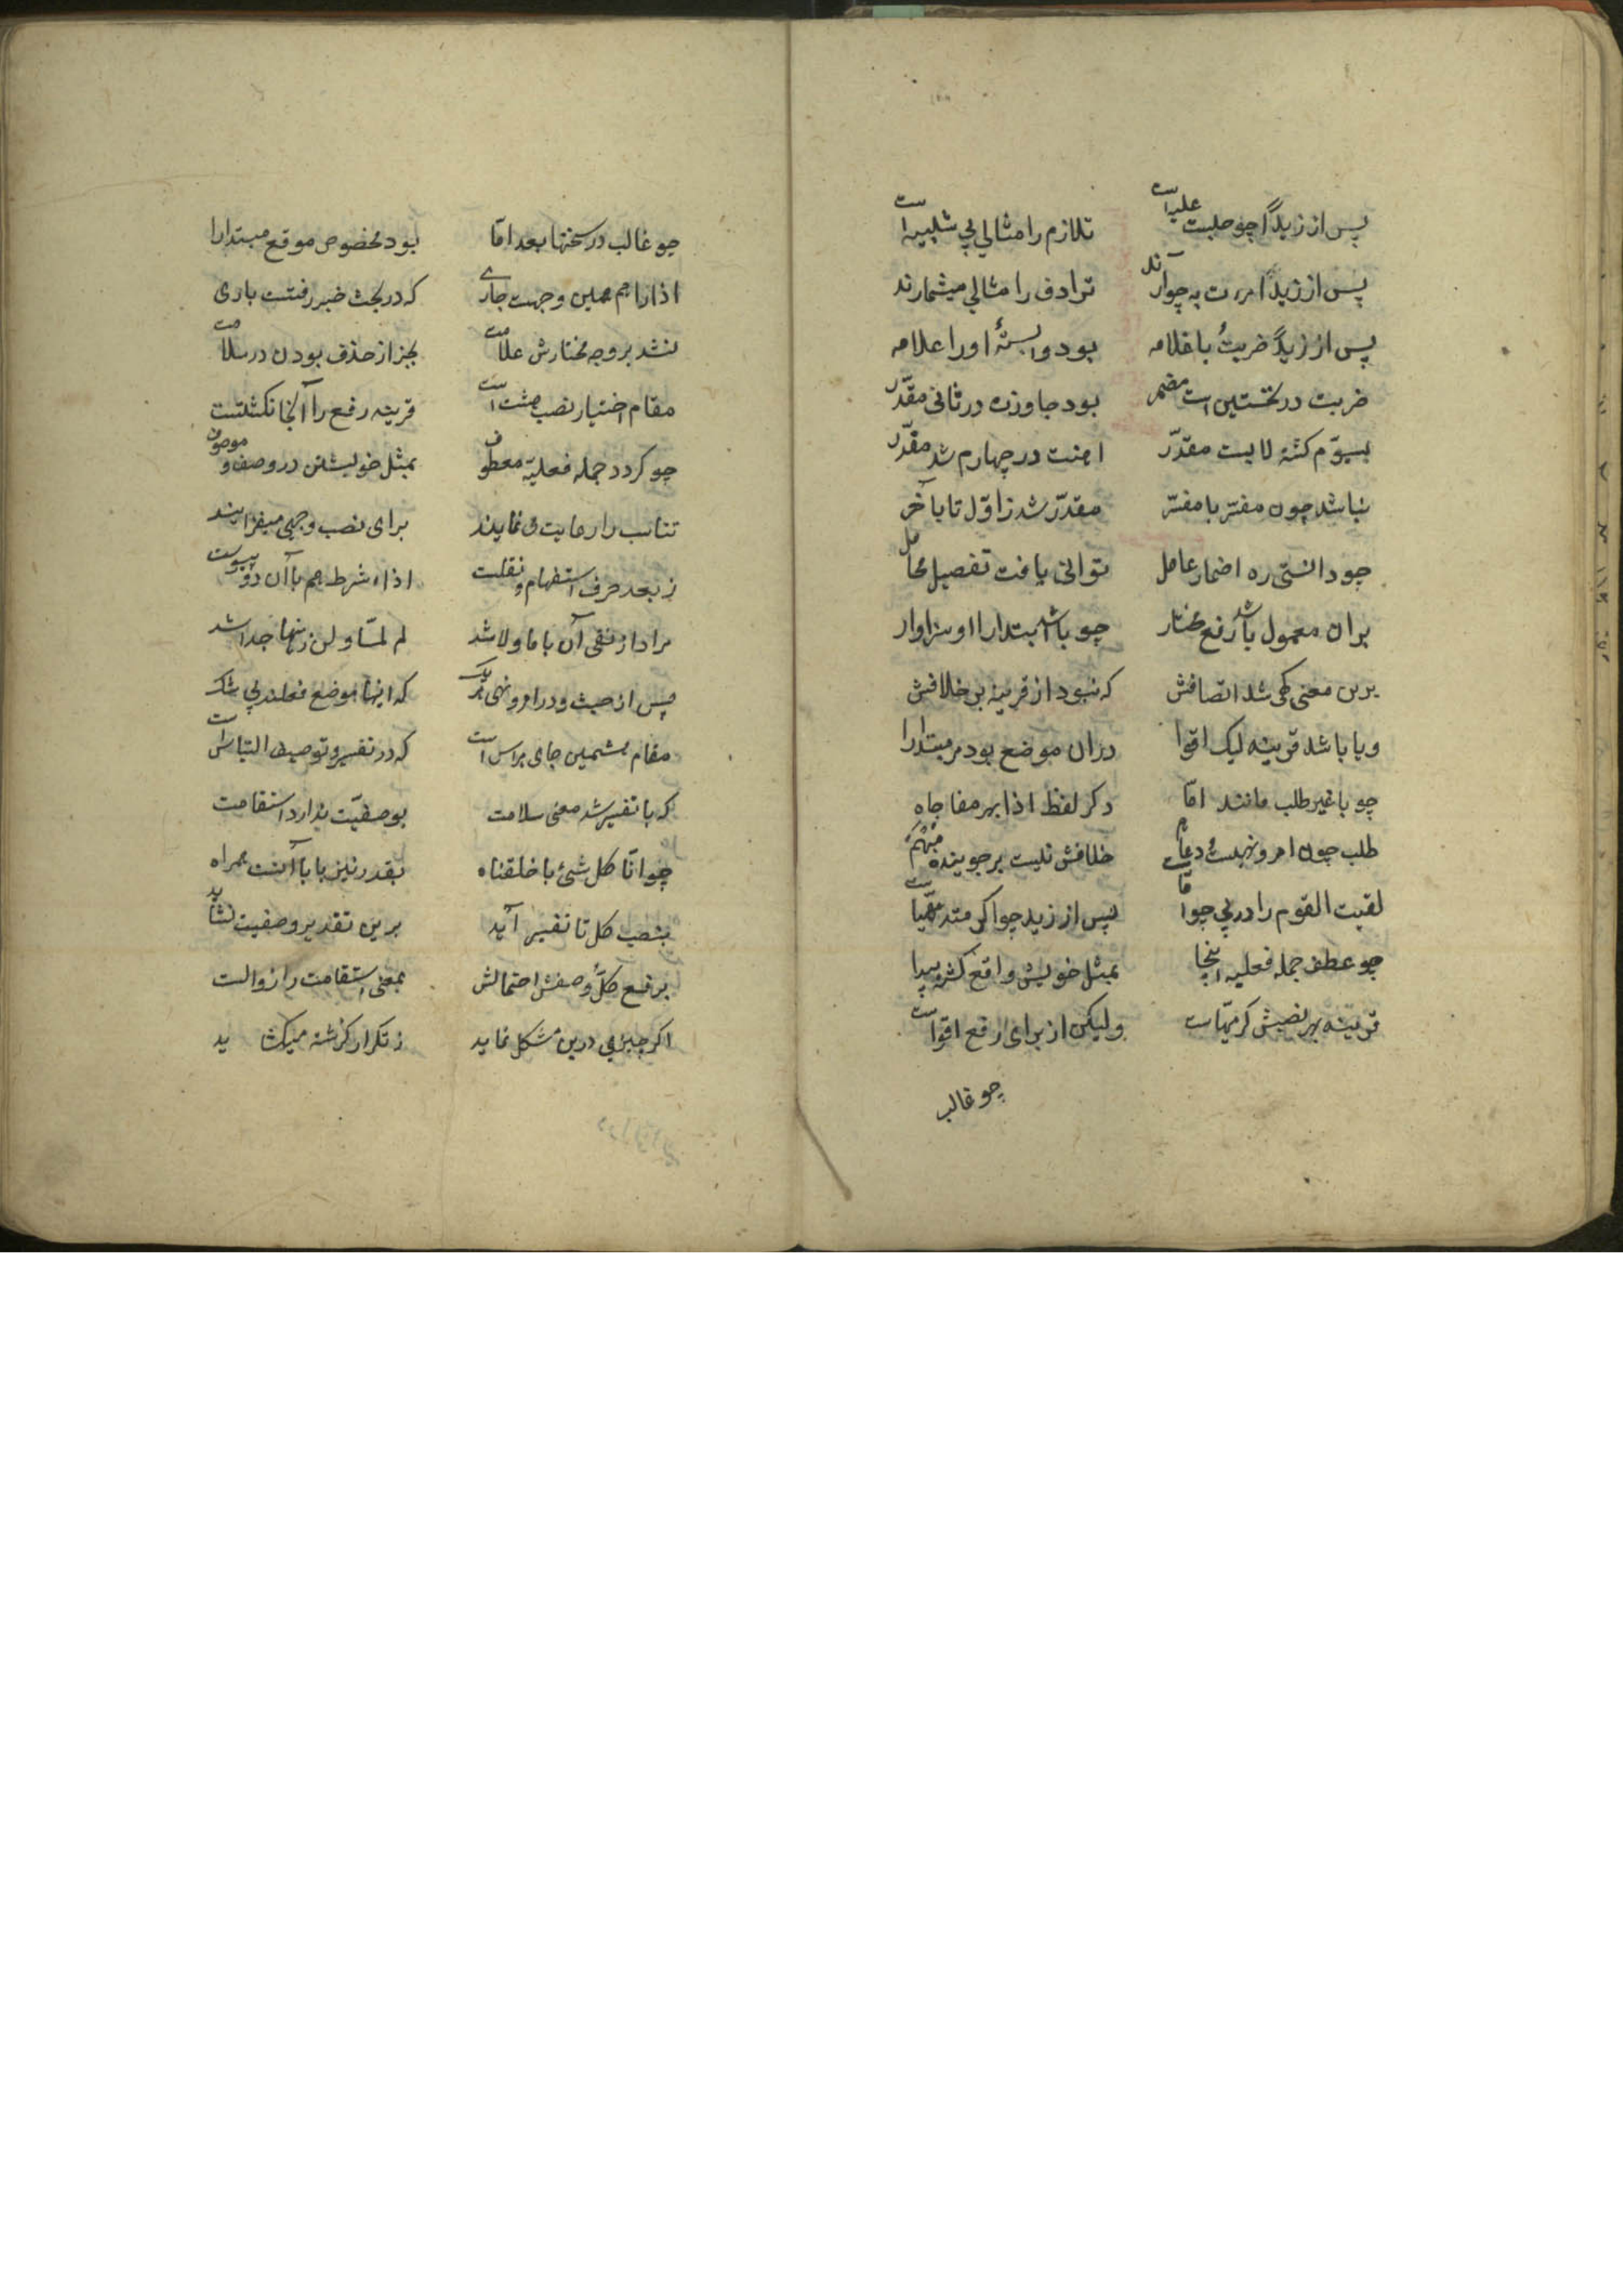 پس از زیداً چو حلبت علیه است تلازم را مثالی بی شبیه است
پس از زیداً مررت به چو آرند ترادف را مثالی میشمارند
پس از زیداً ضربتُ با غلامه بود وابستهٔ او را علامه
ضربت در نخستین است مضمر بود جاوزت در ثانی مقدّر
بسیوّم کشته لابست مقدّر اهنت در چهارم شد مقدّر
نباشد چون مفسّر با مفسّر مقدّر شد ز اوّل تا بآخر
چو دانستی ره اضمار عامل توانی یافت تفصیل محامل
بران معمول باشد رفع مختار چو باشد ابتدا را او سزاوار
برین معنی کی شد اتصافش که نبود از قرینه بر خلافش
و یا باشد قرینه لیک اقوا دران موضع بود مر مبتدا را
چو با غیر طلب مانند امّا دکر لفظ اذا بهر مفاجاه
طلب چون امر و نهیست و دعا هم خلافش نیست بر جوینده مبهم
لقیت القوم را در پی چو امّاست پس از زید چو اکرمته مهیّاست
چو عطف جمله فعلیه اینجا بمثل خویش واقع کشته پیدا
قرینه بهر نصبش کر مهیّاست ولیکن از برای رفع اقواست
چو غالب
چو غالب در سخنها بعد امّا بود مخصوص موقع مبتدا را
اذا را هم همین وجهست جاری که در بحث خبر رفتست باری
نشد بر وجه مختارش علامت بجز از حذف بودن در سلامت
مقام اختیار نصب هشت است قرینه رفع را آنجا نکشتست
چو کردد جمله فعلیّه معطوف بمثل خویشتن در وصف و موصوف
تناسب را رعایت می نمایند برای نصب وجهی میفزایند
ز بعد حرف استفهام و نفیست اذاء شرط هم با آن دو پیوست
مراد از نفی آن با ما و لا شد لم لمّا و لن زینها جدا شد
پس از حیث و در امر و نهی هر یک که اینها موضع فعلند بی شک
مقام هشتمین جای هراس است که در تفسیر و توصیف التباس است
که با تفسیر شد معنی سلامت بوصفیّت ندارد استقامت
چو انّا کل شئ با خلقناه بقدر نیز با با آنست همراه
بنصب کل تا تفسیر آید برین تقدیر وصفیت نشاید
برفع کلّ وصفش احتمالش بمعنی استقامت را زوالست
اکر چیزی درین مشکل نماید ز تکرار کذشته میکشاید